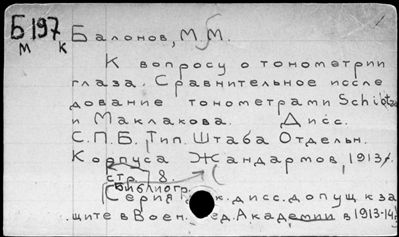 Б197
м к
Балонов, М.М.
К вопросу о тонометрии
глаза. Сравнительное иссле
дование тонометрами Schiötz
и Маклакова. Дисс.
С.П.Б. Тип. Штаба Отдельн.
Корпуса Жандармов, 1913г.
стр. 8
Библиогр.
Серия дисс. допущ к за
щите в Воен. Мед. Академии в 1913-14